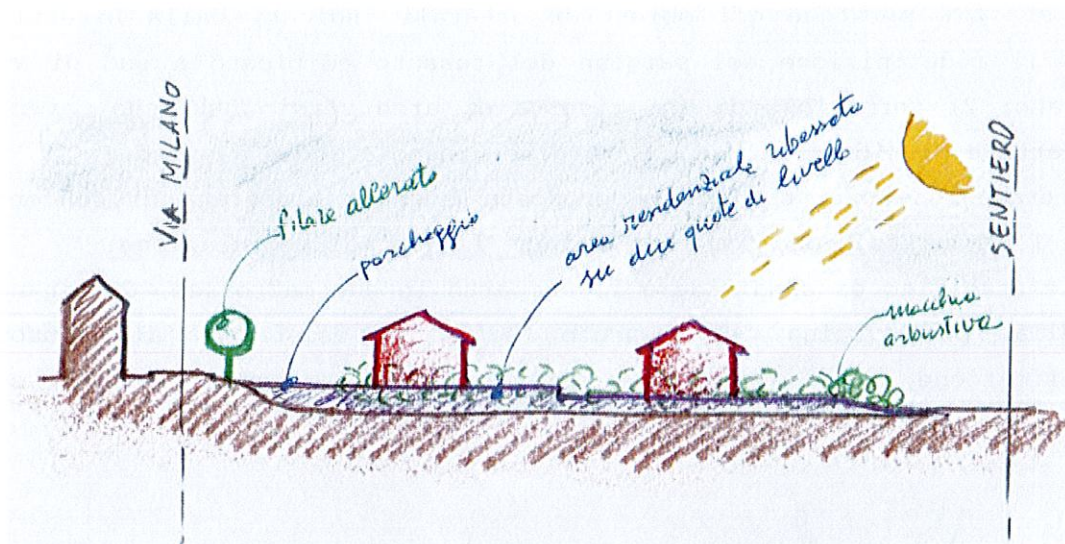 VIA MILANO
filare alberato
parcheggio
area residenziale ribassata
su due quote di livello
macchia
arbustiva
SENTIERO